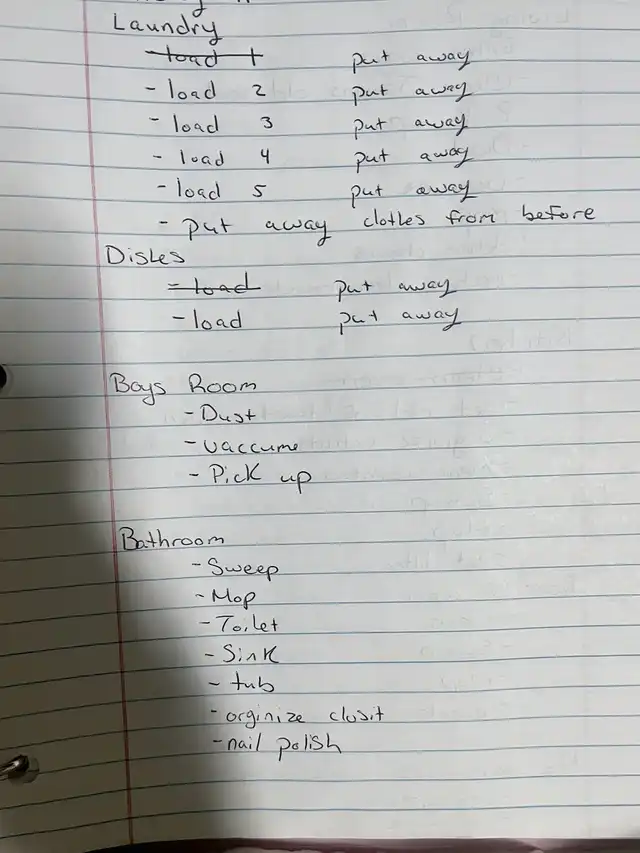 Laundry
- load 1 put away
- load 2 put away
- load 3 put away
- load 4 put away
- load 5 put away
- put away clothes from before
Dishes
- load put away
- load put away
Boys Room
- Dust
- vaccume
- Pick up
Bathroom
- Sweep
- Mop
- Toilet
- Sink
- tub
- orginize closit
- nail polish